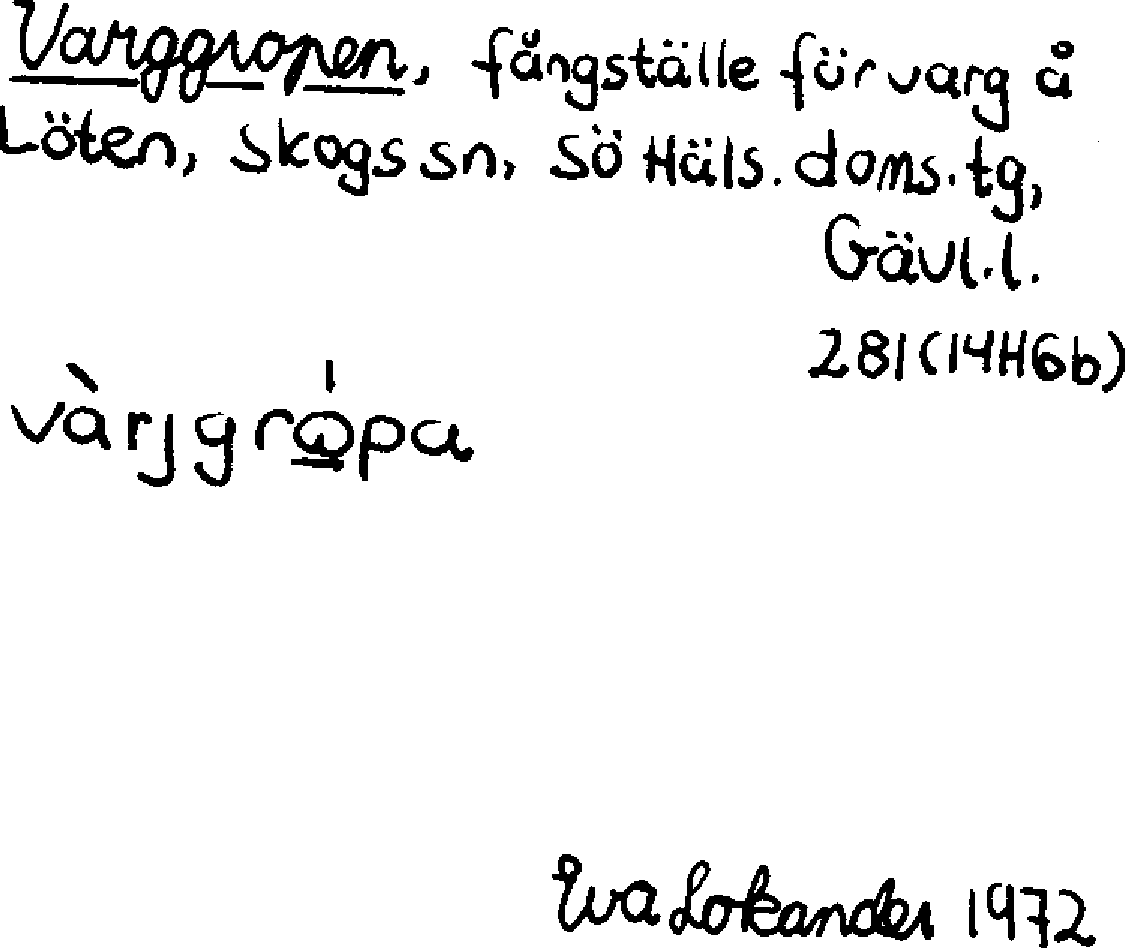 Varggropen, fångställe för varg å
Löten, Skogs sn, Sö Häls. doms. tg,
Gävl. l.
281 (14H6b)
vàrjgrópa
Eva Lokander 1972